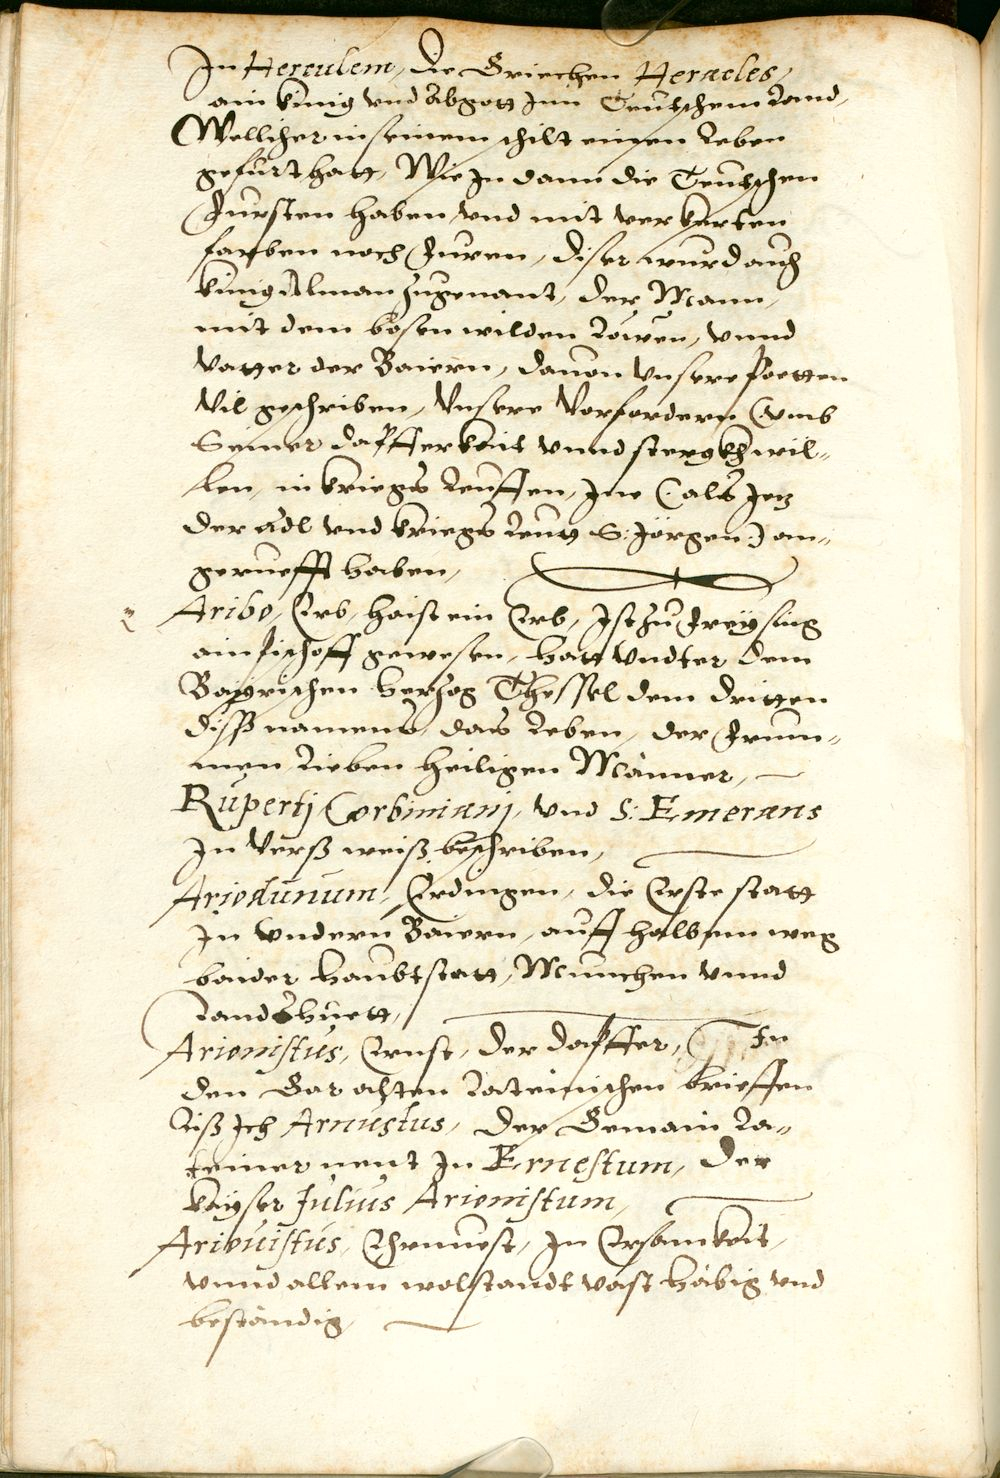 In Herculem, die Griechen Heracles,
ain künig vnd Abgott Inn Teutschem Land,
Wellicher in seinem schilt einen Leben
gefürt hatt, Wie In dann die Teutschen
Fursten haben, vnd mit verkerten
farben noch Fueren, diser wurd auch
künig Alman zugenant, der Mann,
mit dem bösen wilden Löwen, vnnd
Vatter der Baiern, dauon vnsere Poetten
Vil geschriben, Vnsere Vorfordern (:vmb
Seiner dapfferkeit vnnd sterckh wil-
len, in kriegs Leuffen, Ine (:als Jetz
der Adl vnd kriegs Leutt S: Jörgen:) an-
geruefft haben,
Aribo, Erb, haist ein Erb, Ist zu Freysing
ain Bischoff gewesen, hatt vndter dem
Bayrischen Hertzog Thessel dem dritten
diss namens, das Leben, der Frum-
men Lieben heiligen Männer,
Rupertj Corbinianj, vnd S: Emerans
In Verss weiss beschriben,
Ariodunum, Erdingen, die Erste statt
In vndern Baiern, auff halbem weg
baider haubtstatt, München vnnd
Landshuett,
Arionistus, Ernst, der dapffer, In
den Gar alten Lateinischen brieffen
Liss Ich Arnustus, der Gemain La-
teiner nent In Ernestum, der
kayser Julius Arionistum,
Ariouistus, Ehrnuest, In Ersamkeit,
vnnd allem wolstandt vast häbig vnd
beständig,